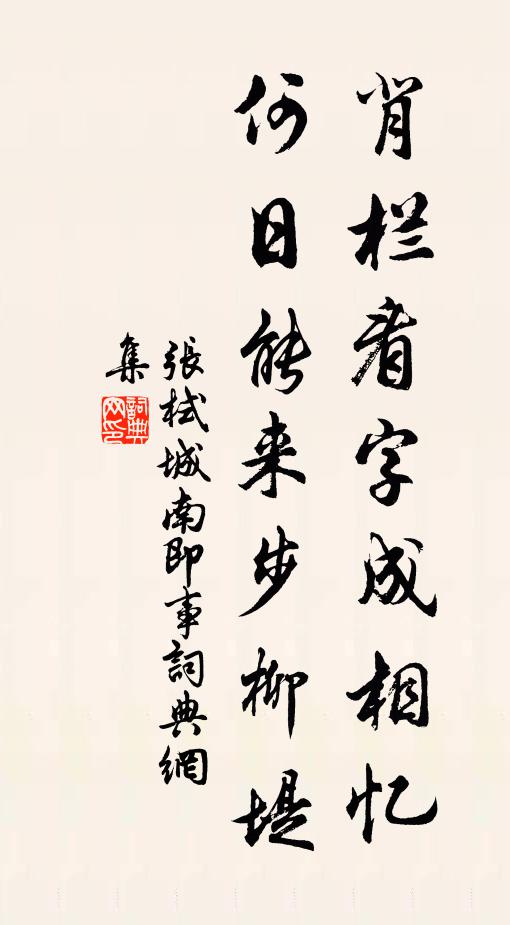 肖栏看字成相忆
何日能来步柳堤
張栻城南即事詞典網
集
詞典网印